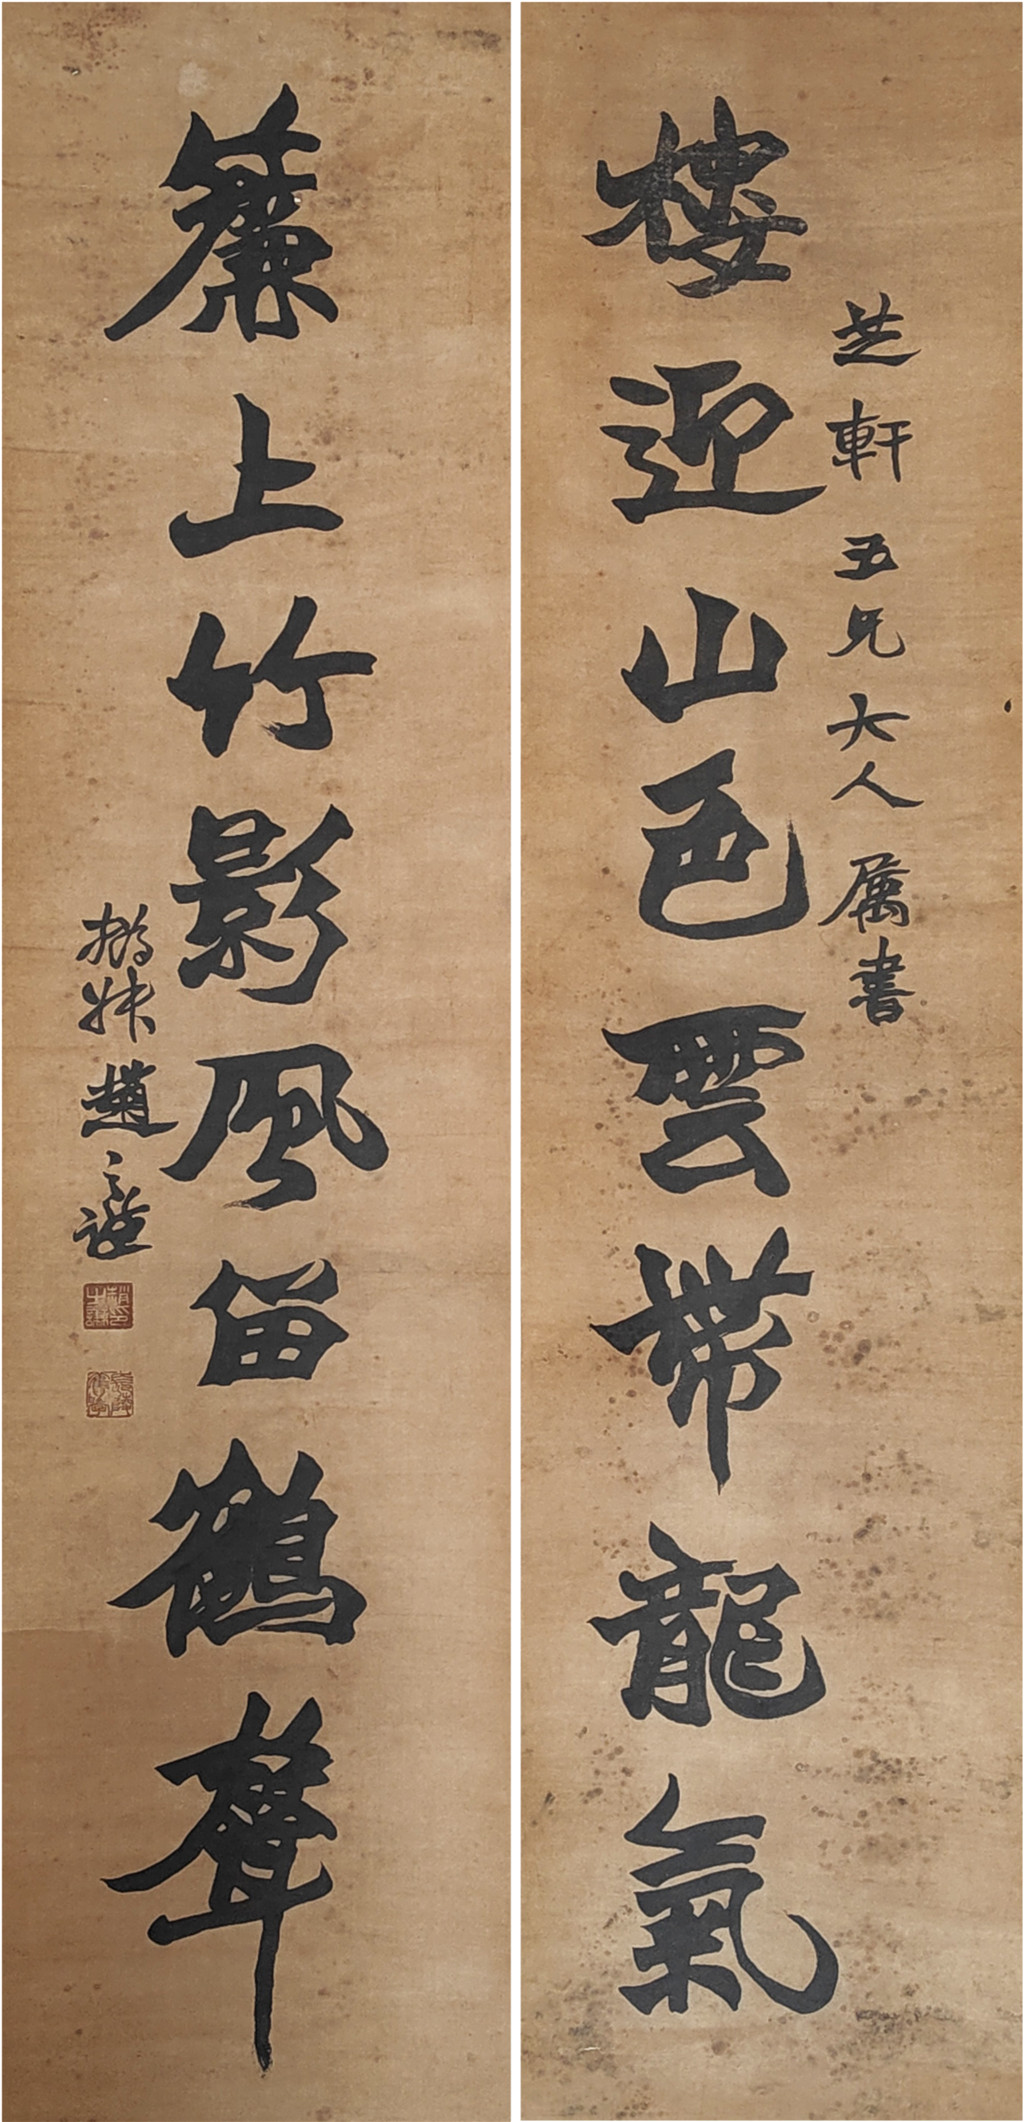 芝軒五兄大人属書
樓迎山色雲帶龍氣
簾上竹影風留鶴聲
撝叔趙之謙